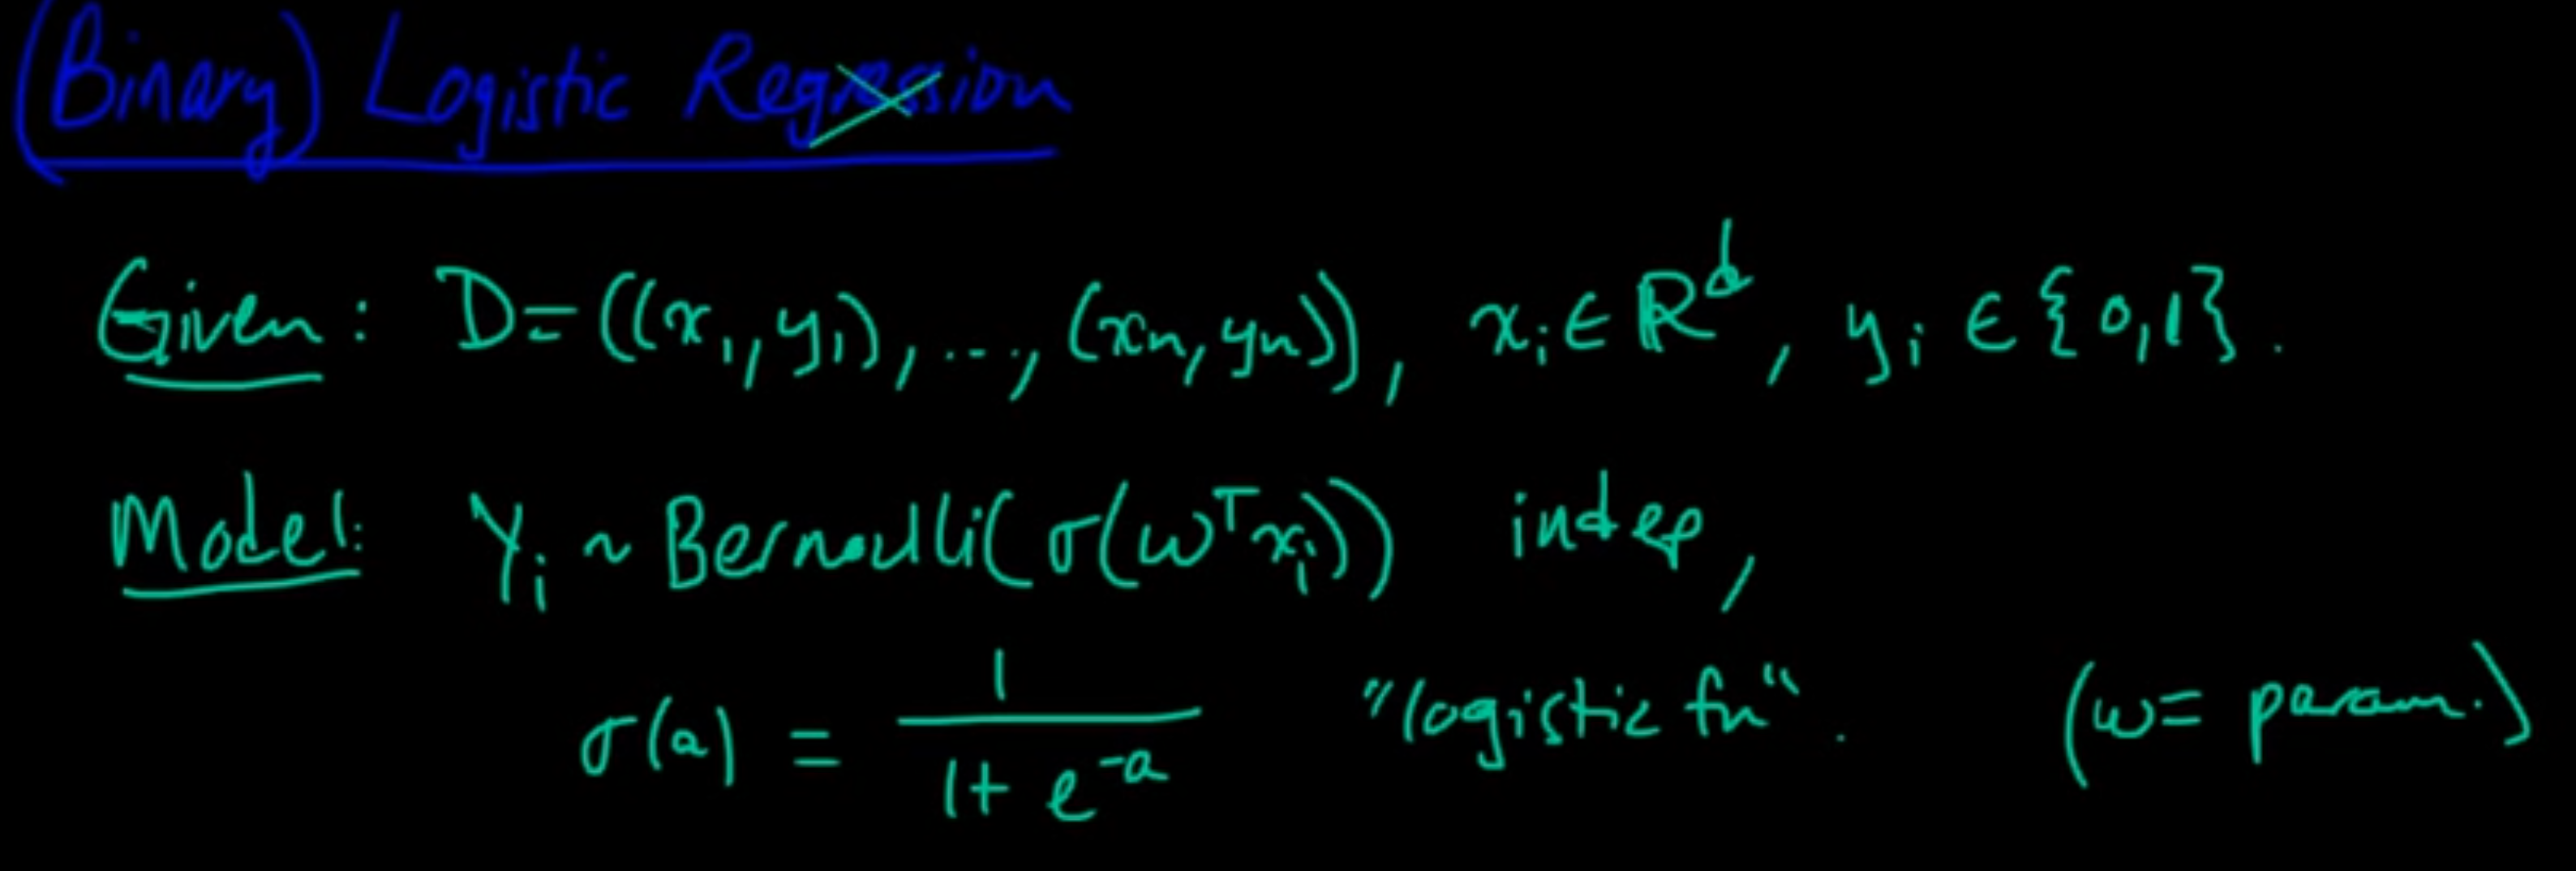 (Binary) Logistic Regression
Given: D=((x₁,y₁),...,(xₙ,yₙ)), xᵢ∈ℝᵈ, yᵢ∈{0,1}.
Model: Yᵢ ~ Bernoulli(σ(wᵀxᵢ)) indep,
σ(a) = 1/(1+e⁻ᵃ) "logistic fn". (w= param.)